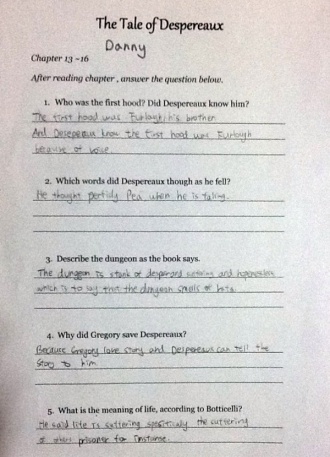 The Tale of Despereaux
Danny
Chapter 13 -16
After reading chapter , answer the question below.
1. Who was the first hood? Did Despereaux know him?
The first hood was Furlough his brother
And Desepeaux know the first hood was Furlough
because of voice.
2. Which words did Despereaux though as he fell?
He thought perfidy Pea when he is falling.
3. Describe the dungeon as the book says.
The dungeon is stank of despair and suffering and hopelessness
which is to say that the dungeon smells of rats.
4. Why did Gregory save Despereaux?
Because Gregory love story and Despereaux can tell the
story to him.
5. What is the meaning of life, according to Botticelli?
He said life is suffering specificly the suffering
of others prisoner for instanse.